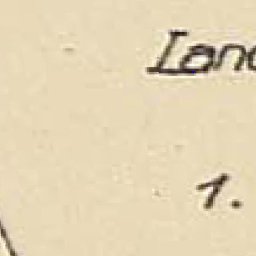 Lan
1.